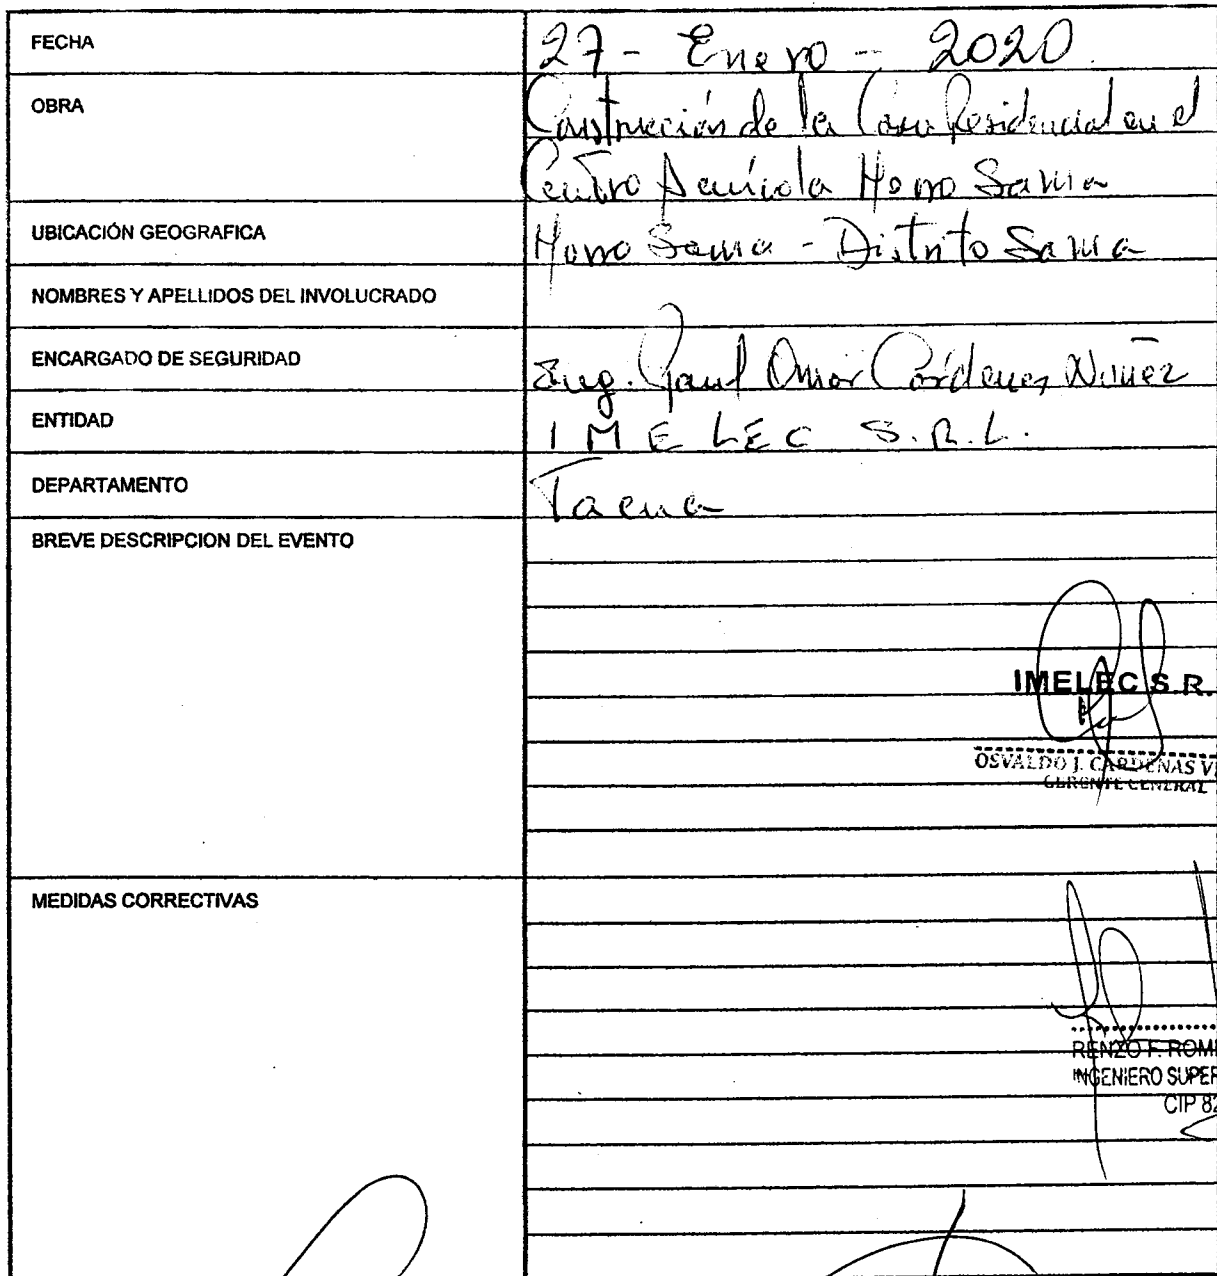 FECHA 27 - Enero - 2020
OBRA Construcción de la Casa Residencial en el
Centro Acuícola Morro Sama
UBICACIÓN GEOGRAFICA Morro Sama - Distrito Sama
NOMBRES Y APELLIDOS DEL INVOLUCRADO
ENCARGADO DE SEGURIDAD Ing. Omar Cárdenas Nuñez
ENTIDAD IMELEC S.R.L.
DEPARTAMENTO Tacna
BREVE DESCRIPCION DEL EVENTO
IMELEC S.R.
OSVALDO J. CARDENAS V
GERENTE GENERAL
MEDIDAS CORRECTIVAS
RENZO F. ROM
INGENIERO SUPER
CIP 82